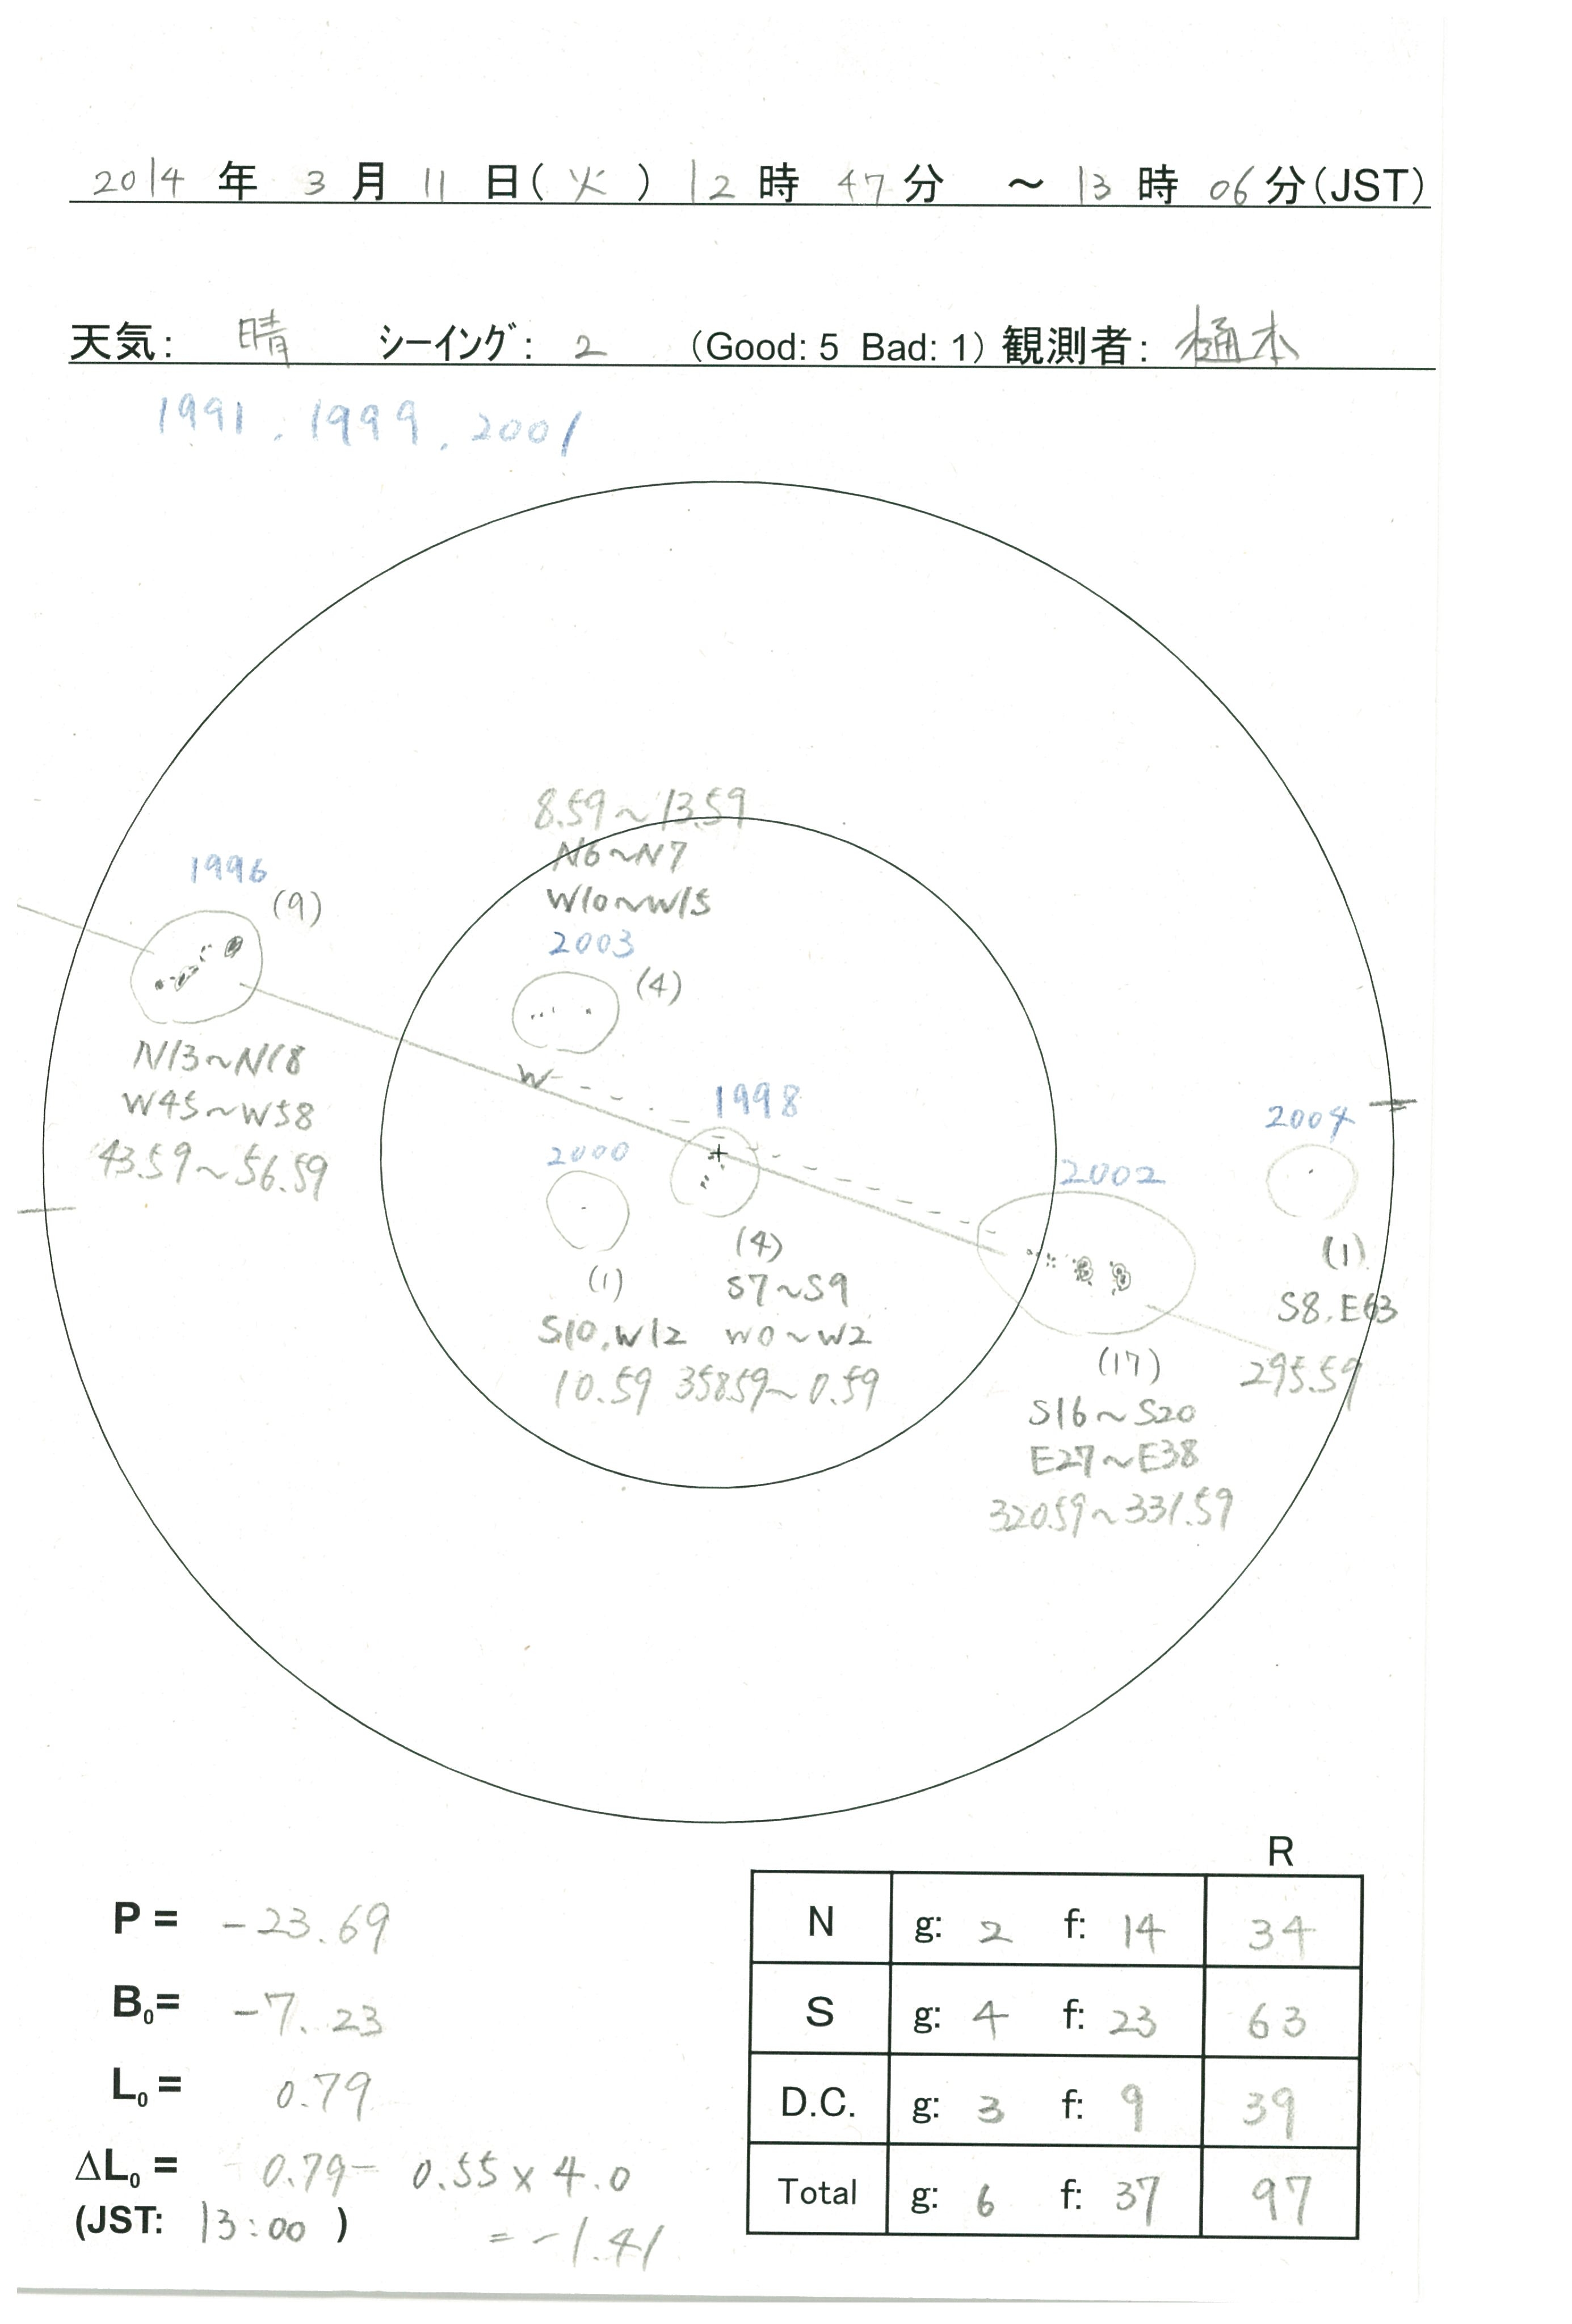 2014 年 3 月 11 日(火) 12 時 47 分 ～ 13 時 06 分(JST)
天気: 晴 シーイング: 2 (Good: 5 Bad: 1) 観測者: 樋本
1991, 1999, 2001
8.59～13.59
N6～N7
W10～W15
2003
(4)
1996
(9)
N13～N18
W45～W58
43.59～56.59
W
1998
(4)
S7～S9
W0～W2
358.59～0.59
2000
(1)
S10, W12
10.59
2002
(17)
S16～S20
E27～E38
320.59～331.59
2004
(1)
S8, E63
295.59
R
P = -23.69
B0= -7.23
L0 = 0.79
ΔL0 = 0.79- 0.55×4.0
(JST: 13:00 ) = -1.41
N g: 2 f: 14 34
S g: 4 f: 23 63
D.C. g: 3 f: 9 39
Total g: 6 f: 37 97